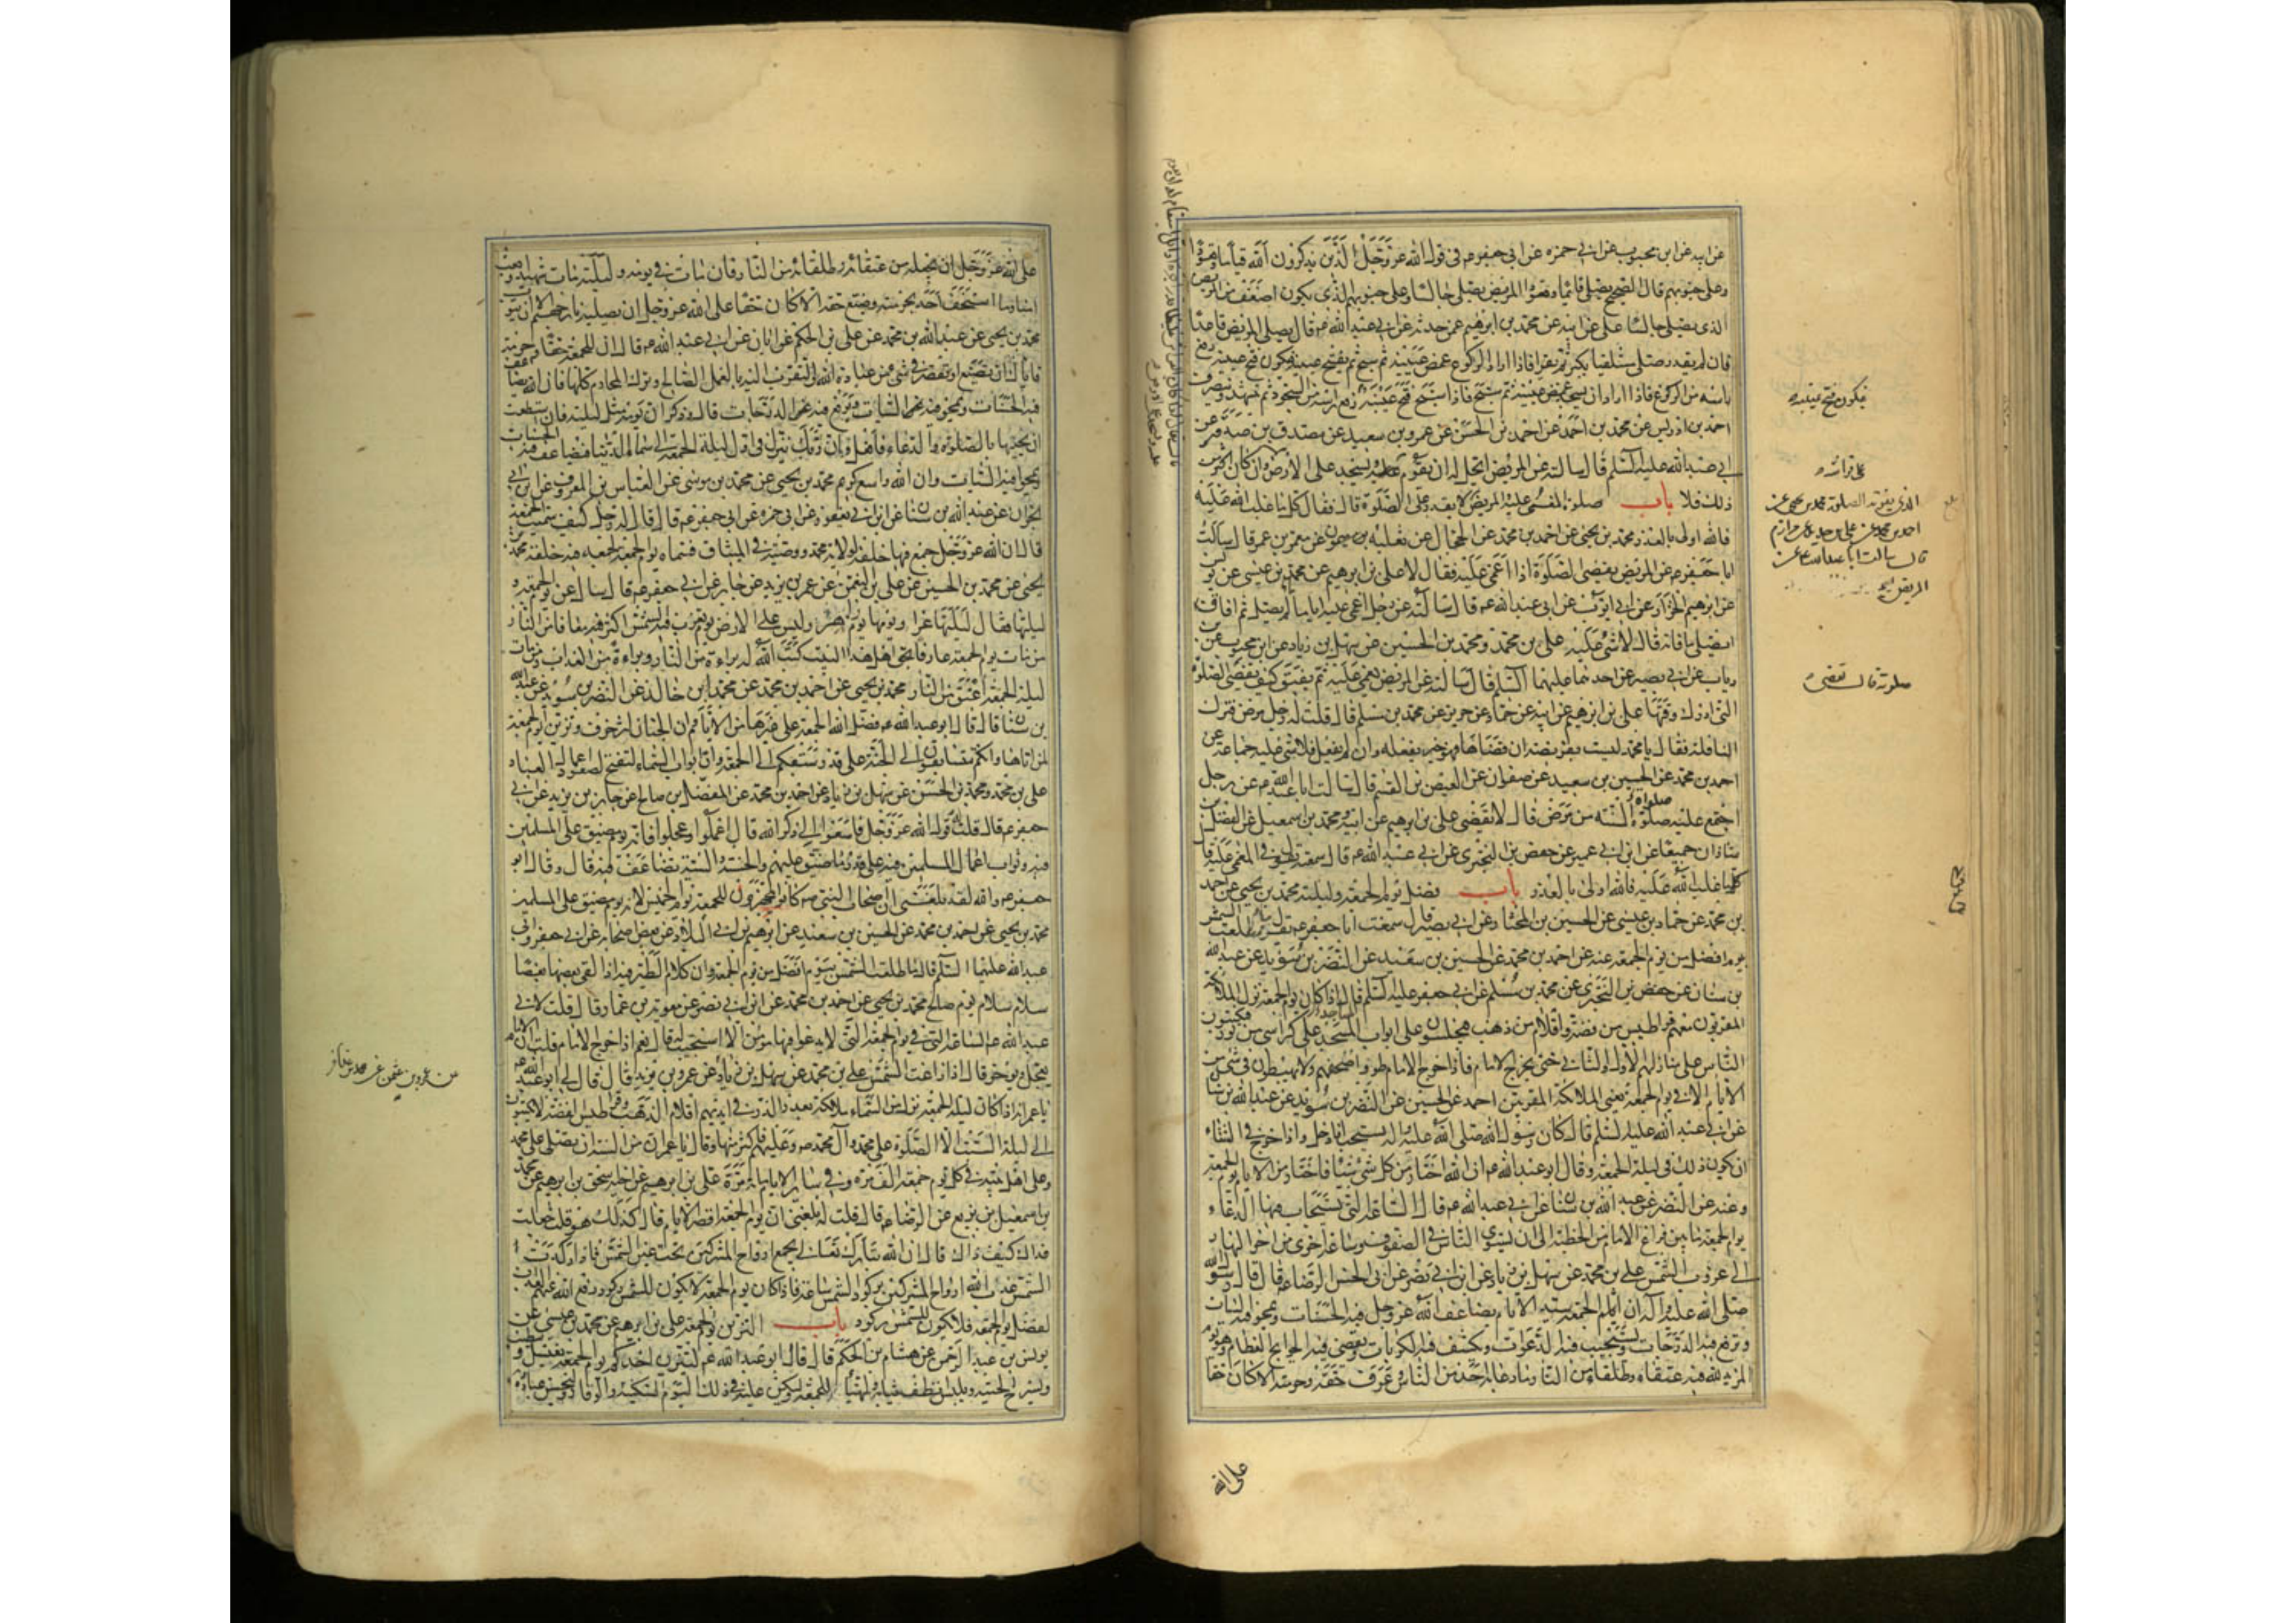 عن ابيه عن ابن محبوب عن ابى حمزه عن ابى جعفر ع فى قول الله عز وجل الذين يذكرون الله قياما وقعودا
وعلى جنوبهم قال الصحيح يصلى قائما وقعودا المريض يصلى جالسا وعلى جنوبهم الذى يكون اضعف من المريض
الذى يصلى جالسا على عن ابيه عن محمد بن ابرهيم عمن حدثه عن ابى عبد الله ع قال يصلى المريض قاعدا
فان لم يقدر صلى مستلقيا يكبر ثم يقرا فاذا اراد الركوع غمض عينيه ثم سبح ثم يفتح عينيه فيكون فتح عينيه رفع
راسه من الركوع فاذا اراد ان يسجد غمض عينيه ثم سبح فاذا سبح فتح عينيه رفع راسه من السجود ثم يتشهد وينصرف
احمد بن ادريس عن محمد بن احمد عن احمد بن الحسن عن عمرو بن سعيد عن مصدق بن صدقه عن
ابى عبد الله عليه السلم قال سالته عن المريض ايحل له ان يقوم على فراشه ويسجد على الارض وان كان اكثر من
ذلك فلا باب صلوة المغمى عليه والمريض لا يقدر على الصلوة قال فقال كل ما غلب الله عليه
فالله اولى بالعذر محمد بن يحيى عن احمد بن محمد عن الحجال عن ثعلبه بن ميمون عن معمر بن عمر قال سالت
ابا جعفر ع عن المريض يقضى الصلوة اذا اغمى عليه فقال لا على بن ابرهيم عن محمد بن عيسى عن يونس
عن ابرهيم الخزاز عن ابى ايوب عن ابى عبد الله ع قال سالته عن رجل اغمى عليه اياما لم يصل ثم افاق
ايصلى ما فاته قال لا شئ عليه على بن محمد ومحمد بن الحسين عن سهل بن زياد عن ابن محبوب عن
رياب عن ابى بصير عن احدهما عليهما السلم قال سالته عن المريض يغمى عليه ثم يفيق كيف يقضى صلوته
التى ادرك وقتها على بن ابرهيم عن ابيه عن حماد عن حريز عن محمد بن مسلم قال قلت له رجل مرض فترك
النافلة فقال يا محمد ليست بفريضه ان قضاها فهو خير يفعله وان لم يفعل فلا شئ عليه جماعة عن
احمد بن محمد عن الحسين بن سعيد عن صفوان عن العيص بن القسم قال سالت ابا عبد الله ع عن رجل
اجتمع عليه صلوة السنة من مرض قال لا يقضى على بن ابرهيم عن ابيه ومحمد بن اسمعيل عن الفضل بن
شاذان جميعا عن ابن ابى عمير عن حفص بن البخترى عن ابى عبد الله ع قال سمعته يقول فى المغمى عليه قال
كلما غلب الله عليه فالله اولى بالعذر باب فضل يوم الجمعة وليلته محمد بن يحيى عن احمد
بن محمد عن حماد بن عيسى عن الحسين بن المختار عن ابى بصير قال سمعت ابا جعفر ع يقول ما طلعت الشمس
بيوم افضل من يوم الجمعة عنه عن احمد بن محمد عن الحسين بن سعيد عن النضر بن سويد عن عبد الله
بن سنان عن حفص بن البخترى عن محمد بن مسلم عن ابى جعفر عليه السلم قال اذا كان يوم الجمعة نزل الملائكة
المقربون معهم قراطيس من فضة واقلام من ذهب فيجلسون على ابواب المسجد على كراسى من نور فيكتبون
الناس على منازلهم الاول والثانى حتى يخرج الامام فاذا خرج الامام طووا صحفهم ولا يهبطون فى شئ من
الايام الا فى يوم الجمعة يعنى الملائكة المقربين احمد عن الحسين عن النضر بن سويد عن عبد الله بن سنان
عن ابى عبد الله عليه السلم قال كان رسول الله صلى الله عليه واله يستحب اذا دخل واذا خرج فى الشتاء
ان يكون ذلك فى ليلة الجمعة وقال ابو عبد الله ع ان الله اختار من كل شئ شيئا فاختار من الايام يوم الجمعة
وعنه عن النضر عن عبد الله بن سنان عن ابى عبد الله ع قال الساعة التى يستجاب فيها الدعاء
يوم الجمعة ما بين فراغ الامام من الخطبة الى ان يستوى الناس فى الصفوف وساعة اخرى من اخر النهار
الى غروب الشمس على بن محمد عن سهل بن زياد عن ابن ابى نصر عن ابى الحسن الرضا ع قال قال رسول الله
صلى الله عليه واله ان يوم الجمعة سيد الايام يضاعف الله عز وجل فيه الحسنات ويمحو فيه السيئات
ويرفع فيه الدرجات ويستجيب فيه الدعوات ويكشف فيه الكربات ويقضى فيه الحوايج العظام وهو يوم
المزيد لله فيه عتقاء وطلقاء من النار ما دعا به احد من الناس وعرف حقه وحرمته الا كان حقا
على الله
فيكون فتح عينيه
على فراشه
الذى يفوته الصلوة محمد بن يحيى عن
احمد بن محمد عن على بن حديد عن مرازم
قال سالت ابا عبد الله ع عن
المريض
صلوته قال يقضى
على الله عز وجل ان يجعله من عتقائه وطلقائه من النار فان مات فى يومه وليلته مات شهيدا وبعث
امنا وما استخف احد بحرمته وضيع حقه الا كان حقا على الله عز وجل ان يصليه نار جهنم الا ان يتوب
محمد بن يحيى عن عبد الله بن محمد عن على بن الحكم عن ابان عن ابى عبد الله ع قال ان للجمعة حقا وحرمة
فاياك ان تضيع او تقصر فى شئ من عبادة الله والتقرب اليه بالعمل الصالح وترك المحارم كلها فان الله يضاعف
فيه الحسنات ويمحو فيه السيئات ويرفع فيه الدرجات قال وذكر ان يومه مثل ليلته فان استطعت
ان تحييها بالصلوة والدعاء فافعل وان ربك ينزل فى اول ليلة الجمعة الى سماء الدنيا فيضاعف فيه الحسنات
ويمحوا فيه السيئات وان الله واسع كريم محمد بن يحيى عن محمد بن موسى عن العباس بن المعروف عن ابن ابى
نجران عن عبد الله بن سنان عن ابن ابى يعفور عن ابى حمزه عن ابى جعفر ع قال قال له رجل كيف سميت الجمعة
قال ان الله عز وجل جمع فيها خلقه لولاية محمد ووصيه فى الميثاق فسماه يوم الجمعة لجمعه فيه خلقه محمد بن
يحيى عن محمد بن الحسين عن على بن النعمن عن عمر بن يزيد عن جابر عن ابى جعفر ع قال سئل عن يوم الجمعة و
ليلتها فقال ليلتها غرا ويومها يوم ازهر وليس على الارض يوم تغرب فيه الشمس اكثر فيه معافا من النار
من مات يوم الجمعة عارفا بحق اهل هذا البيت كتب الله له براءة من النار وبراءة من العذاب ومن مات
ليلة الجمعة اعتق من النار محمد بن يحيى عن احمد بن محمد عن محمد بن خالد عن النضر بن سويد عن عبد الله
بن سنان قال قال ابو عبد الله ع فضل الله الجمعة على غيرها من الايام وان الجنان لتزخرف وتزين يوم الجمعة
لمن اتاها وانكم تتسابقون الى الجنة على قدر سبقكم الى الجمعة وان ابواب السماء لتفتح لصعود اعمال العباد
على بن محمد ومحمد بن الحسن عن سهل بن زياد عن احمد بن محمد عن المفضل بن صالح عن جابر بن يزيد عن ابى
جعفر ع قال قلت له قول الله عز وجل فاسعوا الى ذكر الله قال اعملوا وعجلوا فانه يوم مضيق على المسلمين
فيه وثواب اعمال المسلمين فيه على قدر ما ضيق عليهم والحسنة والسيئة تضاعف فيه قال وقال ابو
جعفر ع والله لقد بلغنى ان اصحاب النبى ص كانوا يتجهزون للجمعة يوم الخميس لانه يوم مضيق على المسلمين
محمد بن يحيى عن احمد بن محمد عن الحسين بن سعيد عن ابرهيم بن ابى البلاد عن بعض اصحابه عن ابى جعفر وابى
عبد الله عليهما السلم قال ما طلعت الشمس بيوم افضل من يوم الجمعة وان كلام الطير فيه اذا لقى بعضها بعضا
سلام سلام يوم صالح محمد بن يحيى عن احمد بن محمد عن ابن ابى نصر عن معوية بن عمار قال قلت لابى
عبد الله ع الساعة التى فى يوم الجمعة التى لا يدعوا فيها مؤمن الا استجيب له قال نعم اذا خرج الامام قلت ان الامام
يعجل ويوخر قال اذا زاغت الشمس على بن محمد عن سهل بن زياد عن عمرو بن يزيد قال قال لى ابو عبد الله ع
يا عمر انه اذا كان ليلة الجمعة نزل من السماء ملائكة بعدد الذر فى ايديهم اقلام الذهب وقراطيس الفضة لا يكتبون
الى ليلة السبت الا الصلوة على محمد وآل محمد ص وعليهم فاكثر منها وقال يا عمر ان من السنة ان تصلى على محمد
وعلى اهل بيته فى كل يوم جمعة الف مرة وفى سائر الايام مائة مرة على بن ابرهيم عن اخيه اسحق بن ابرهيم عن محمد
بن اسمعيل بن بزيع عن الرضا ع قال قلت له بلغنى ان يوم الجمعة اقصر الايام قال كذلك هو قلت جعلت
فداك كيف ذاك قال ان الله تبارك تعالى يجمع ارواح المشركين تحت عين الشمس فاذا ركدت
الشمس عذب الله ارواح المشركين بركود الشمس ساعة فاذا كان يوم الجمعة لا يكون للشمس ركود رفع الله عنهم العذاب
لفضل يوم الجمعة فلا يكون للشمس ركود باب التزين يوم الجمعة على بن ابرهيم عن محمد بن عيسى عن
يونس بن عبد الرحمن عن هشام بن الحكم قال قال ابو عبد الله ع ليتزين احدكم يوم الجمعة يغتسل ويتطيب
ويسرح لحيته ويلبس انظف ثيابه وليتهيا للجمعة وليكن عليه فى ذلك اليوم السكينة والوقار وليحسن عبادة